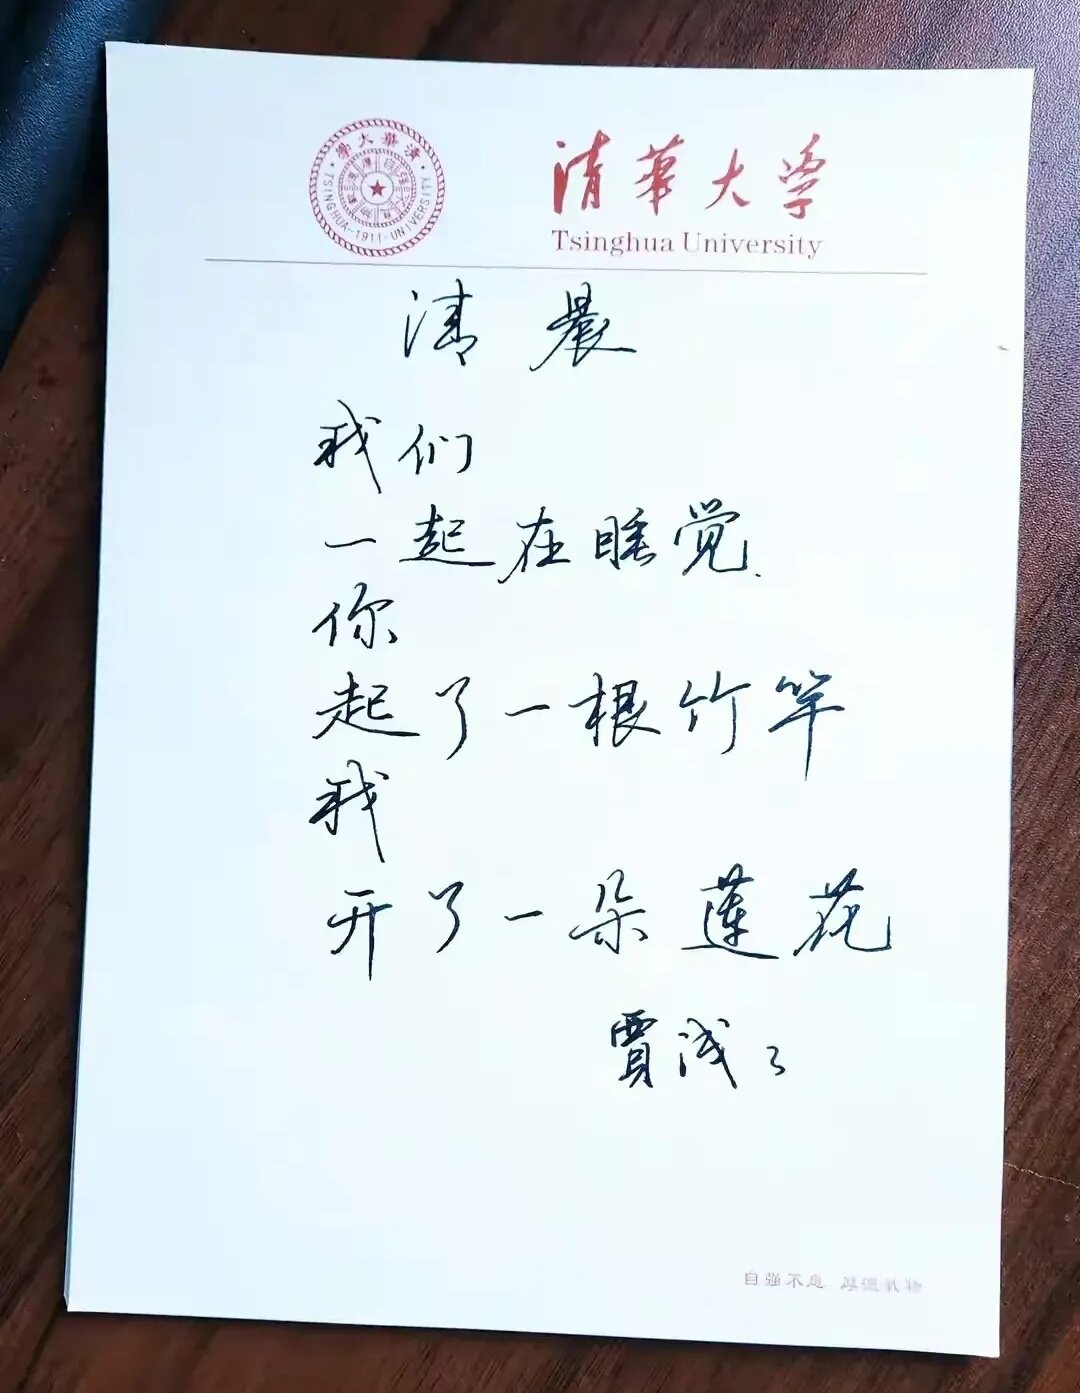 清華大學
TSINGHUA-1911-UNIVERSITY
清華大学
Tsinghua University
清晨
我们
一起在睡觉.
你
起了一根竹竿
我
开了一朵莲花
賈浅々
自强不息 厚德载物